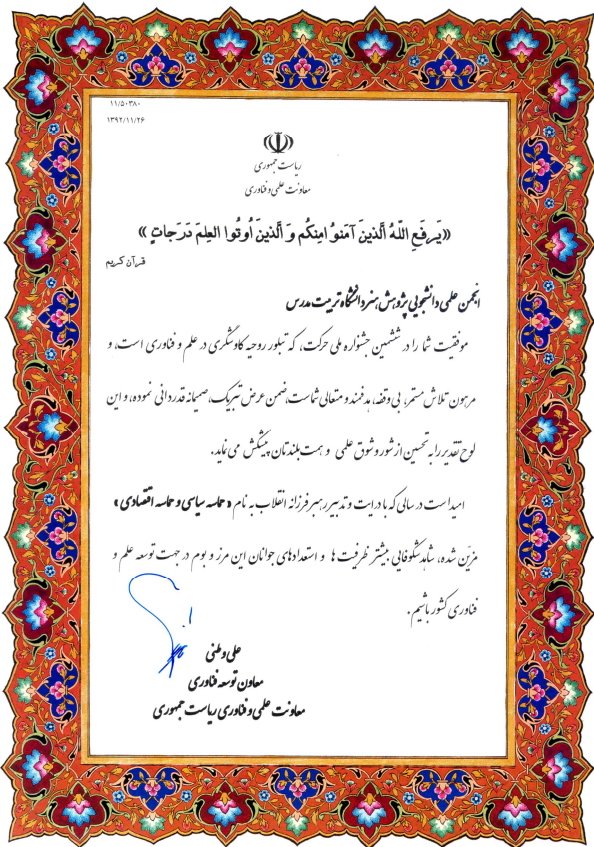 ۱۱/۵۰۳۸۰
۱۳۹۲/۱۱/۲۶
ریاست جمهوری
معاونت علمی و فناوری
«یَرفَعِ اللّهُ الَّذینَ آمَنوُ امِنکُم وَ الَّذینَ اُوتُوا العِلمَ دَرَجاتٍ»
قرآن کریم
انجمن علمی دانشجویی پژوهش هنر دانشگاه تربیت مدرس
موفقیت شما را در ششمین جشنواره ملی حرکت، که تبلور روحیه کاوشگری در علم و فناوری است، و
مرهون تلاش مستمر، بی‌وقفه، هدفمند و متعالی شماست، ضمن عرض تبریک، صمیمانه قدردانی نموده، و این
لوح تقدیر را به تحسین از شور و شوق علمی و همت بلندتان پیشکش می‌نماید.
امید است در سالی که با درایت و تدبیر رهبر فرزانه انقلاب به نام «حماسه سیاسی و حماسه اقتصادی»
مزیّن شده، شاهد شکوفایی بیشتر ظرفیت ها و استعدادهای جوانان این مرز و بوم در جهت توسعه علم و
فناوری کشور باشیم.
علی وطنی
معاون توسعه فناوری
معاونت علمی و فناوری ریاست جمهوری